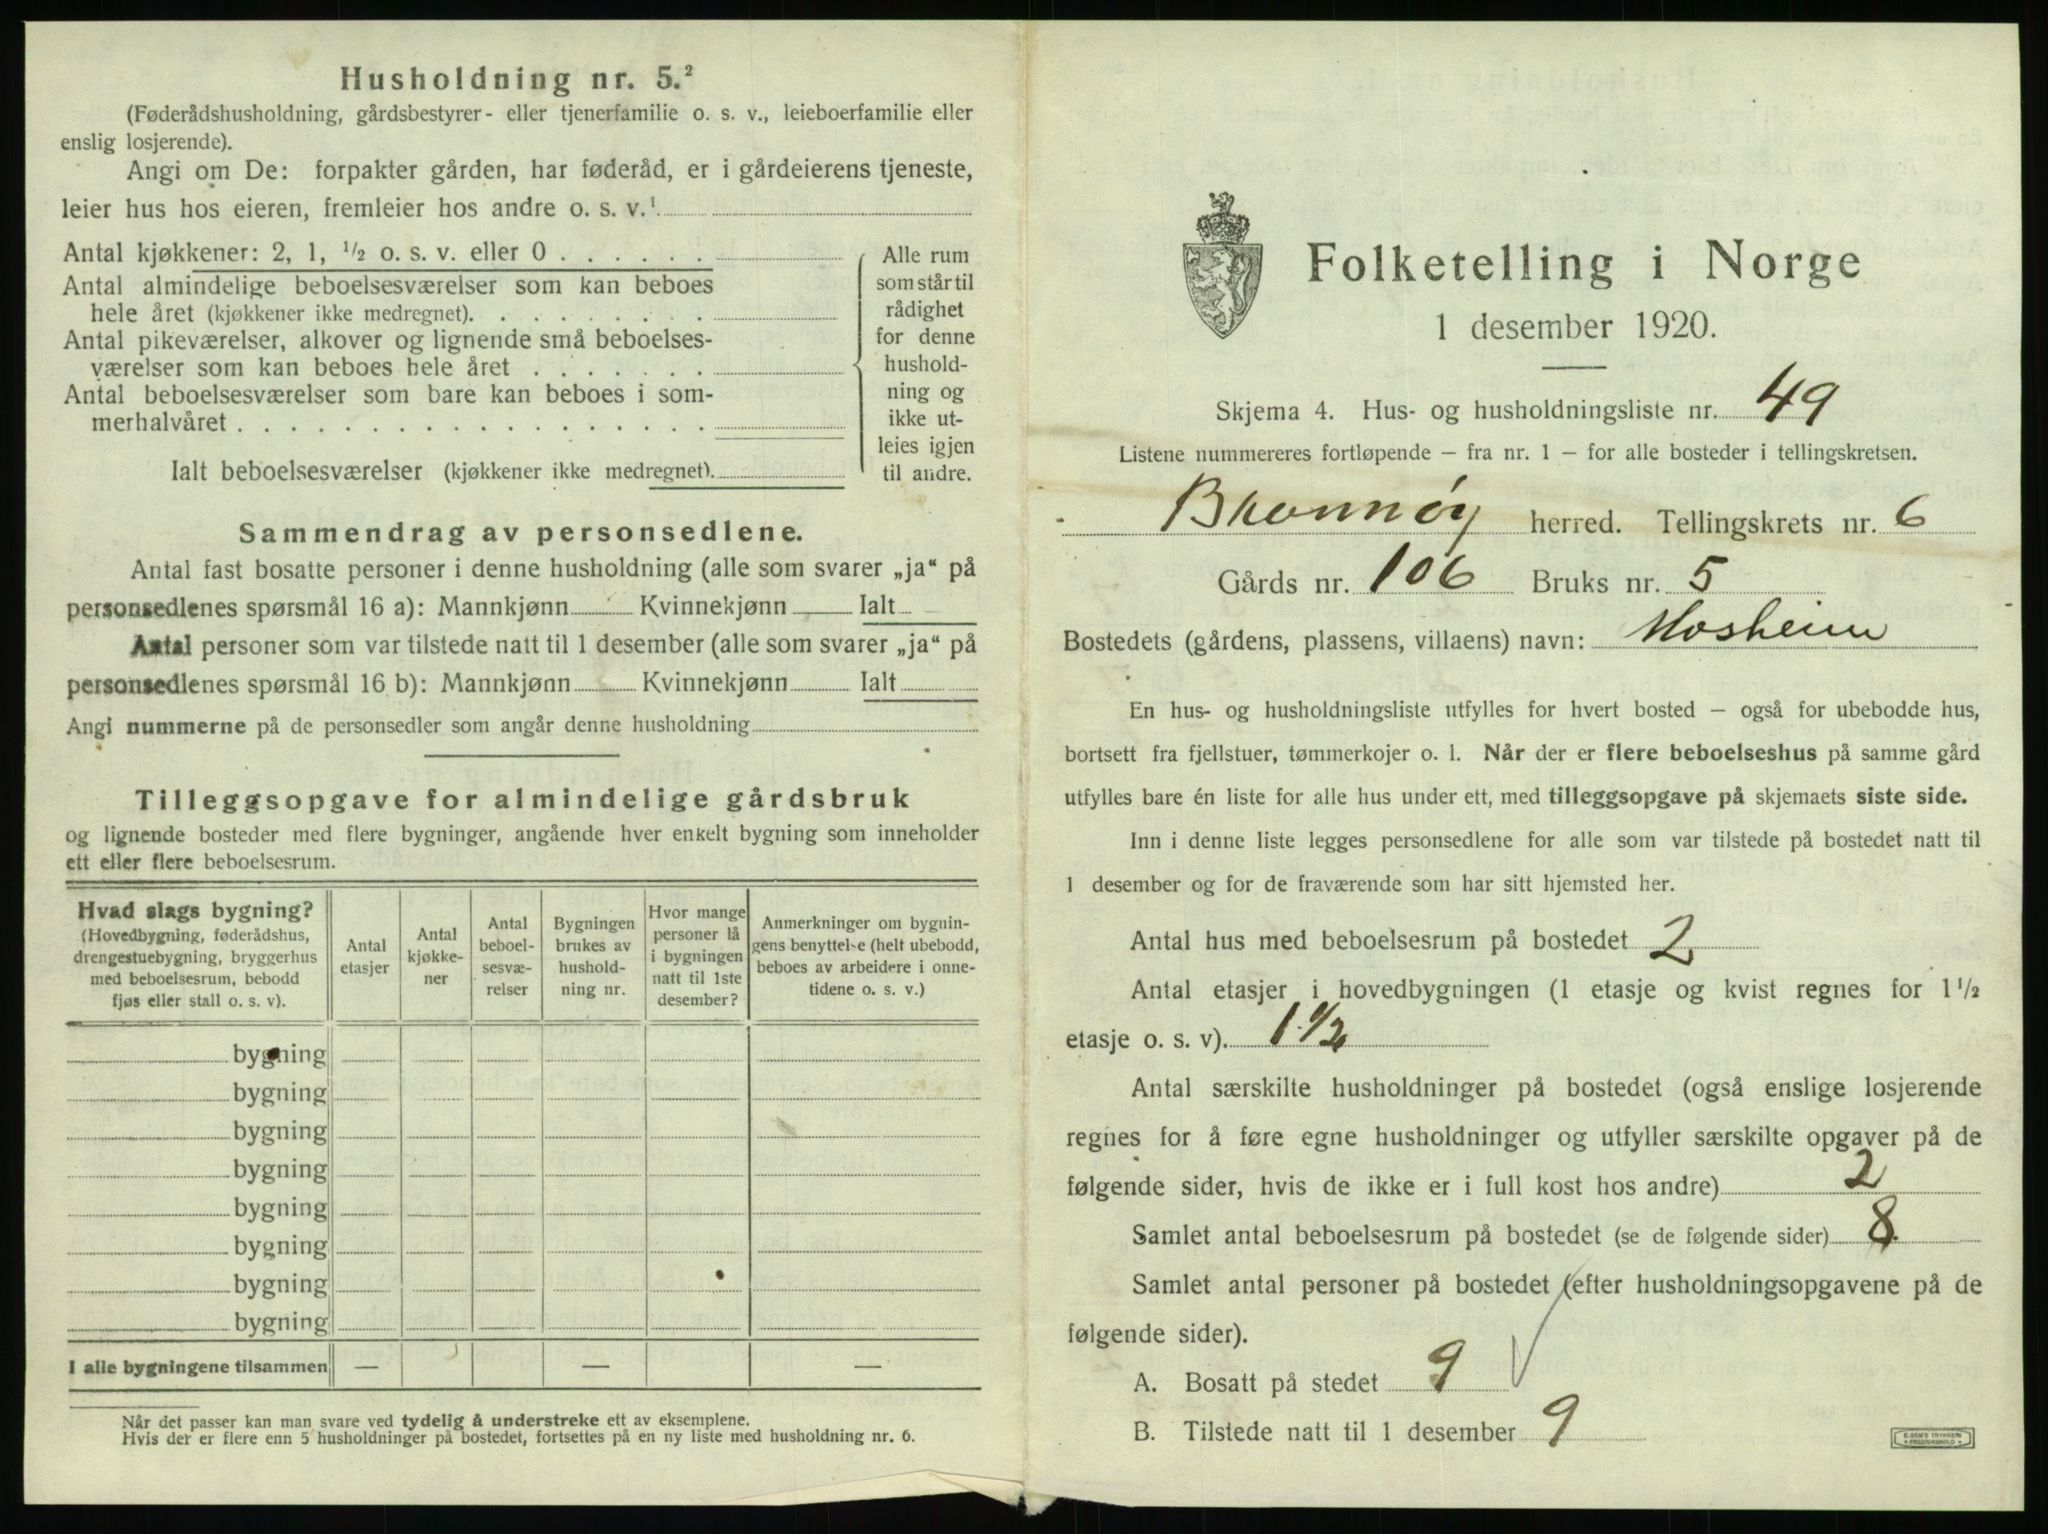 Husholdning nr. 5.²
(Føderådshusholdning, gårdsbestyrer- eller tjenerfamilie o. s. v., leieboerfamilie eller
enslig losjerende).
Angi om De: forpakter gården, har føderåd, er i gårdeierens tjeneste,
leier hus hos eieren, fremleier hos andre o. s. v.¹
Antal kjøkkener: 2, 1, ½ o. s. v. eller 0 . . . . . .
Antal almindelige beboelsesværelser som kan beboes
hele året (kjøkkener ikke medregnet). . . . . . . . .
Antal pikeværelser, alkover og lignende små beboelses-
værelser som kan beboes hele året . . . . . . .
Antal beboelsesværelser som bare kan beboes i som-
merhalvåret . . . . . . . . . . . . . . . . . .
Ialt beboelsesværelser (kjøkkener ikke medregnet).
Alle rum
som står til
rådighet
for denne
hushold-
ning og
ikke ut-
leies igjen
til andre.
Sammendrag av personsedlene.
Antal fast bosatte personer i denne husholdning (alle som svarer „ja" på
personsedlenes spørsmål 16 a): Mannkjønn Kvinnekjønn Ialt
Antal personer som var tilstede natt til 1 desember (alle som svarer „ja" på
personsedlenes spørsmål 16 b): Mannkjønn Kvinnekjønn Ialt
Angi nummerne på de personsedler som angår denne husholdning
Tilleggsopgave for almindelige gårdsbruk
og lignende bosteder med flere bygninger, angående hver enkelt bygning som inneholder
ett eller flere beboelsesrum.
Hvad slags bygning?
(Hovedbygning, føderådshus,
drengestuebygning, bryggerhus
med beboelsesrum, bebodd
fjøs eller stall o. s. v).
Antal
etasjer
Antal
kjøkke-
ner
Antal
beboel-
sesvæ-
relser
Bygningen
brukes av
hushold-
ning nr.
Hvor mange
personer lå
i bygningen
natt til 1ste
desember?
Anmerkninger om bygnin-
gens benyttelse (helt ubebodd,
beboes av arbeidere i onne-
tidene o. s. v.)
bygning
bygning
bygning
bygning
bygning
bygning
bygning
bygning
I alle bygningene tilsammen — — —
Når det passer kan man svare ved tydelig å understreke ett av eksemplene.
Hvis der er flere enn 5 husholdninger på bostedet, fortsettes på en ny liste med husholdning nr. 6.
Folketelling i Norge
1 desember 1920.
Skjema 4. Hus- og husholdningsliste nr. 49
Listene nummereres fortløpende – fra nr. 1 – for alle bosteder i tellingskretsen.
Brønnøy herred. Tellingskrets nr. 6
Gårds nr. 106 Bruks nr. 5
Bostedets (gårdens, plassens, villaens) navn: Mosheim
En hus- og husholdningsliste utfylles for hvert bosted – også for ubebodde hus,
bortsett fra fjellstuer, tømmerkojer o. l. Når der er flere beboelseshus på samme gård
utfylles bare én liste for alle hus under ett, med tilleggsopgave på skjemaets siste side.
Inn i denne liste legges personsedlene for alle som var tilstede på bostedet natt til
1 desember og for de fraværende som har sitt hjemsted her.
Antal hus med beboelsesrum på bostedet 2
Antal etasjer i hovedbygningen (1 etasje og kvist regnes for 1 ½
etasje o. s. v). 1 ½
Antal særskilte husholdninger på bostedet (også enslige losjerende
regnes for å føre egne husholdninger og utfyller særskilte opgaver på de
følgende sider, hvis de ikke er i full kost hos andre) 2
Samlet antal beboelsesrum på bostedet (se de følgende sider) 8
Samlet antal personer på bostedet (efter husholdningsopgavene på de
følgende sider).
A. Bosatt på stedet 9
B. Tilstede natt til 1 desember 9
E. SEM'S TRYKKERI
FREDRIKSHALD